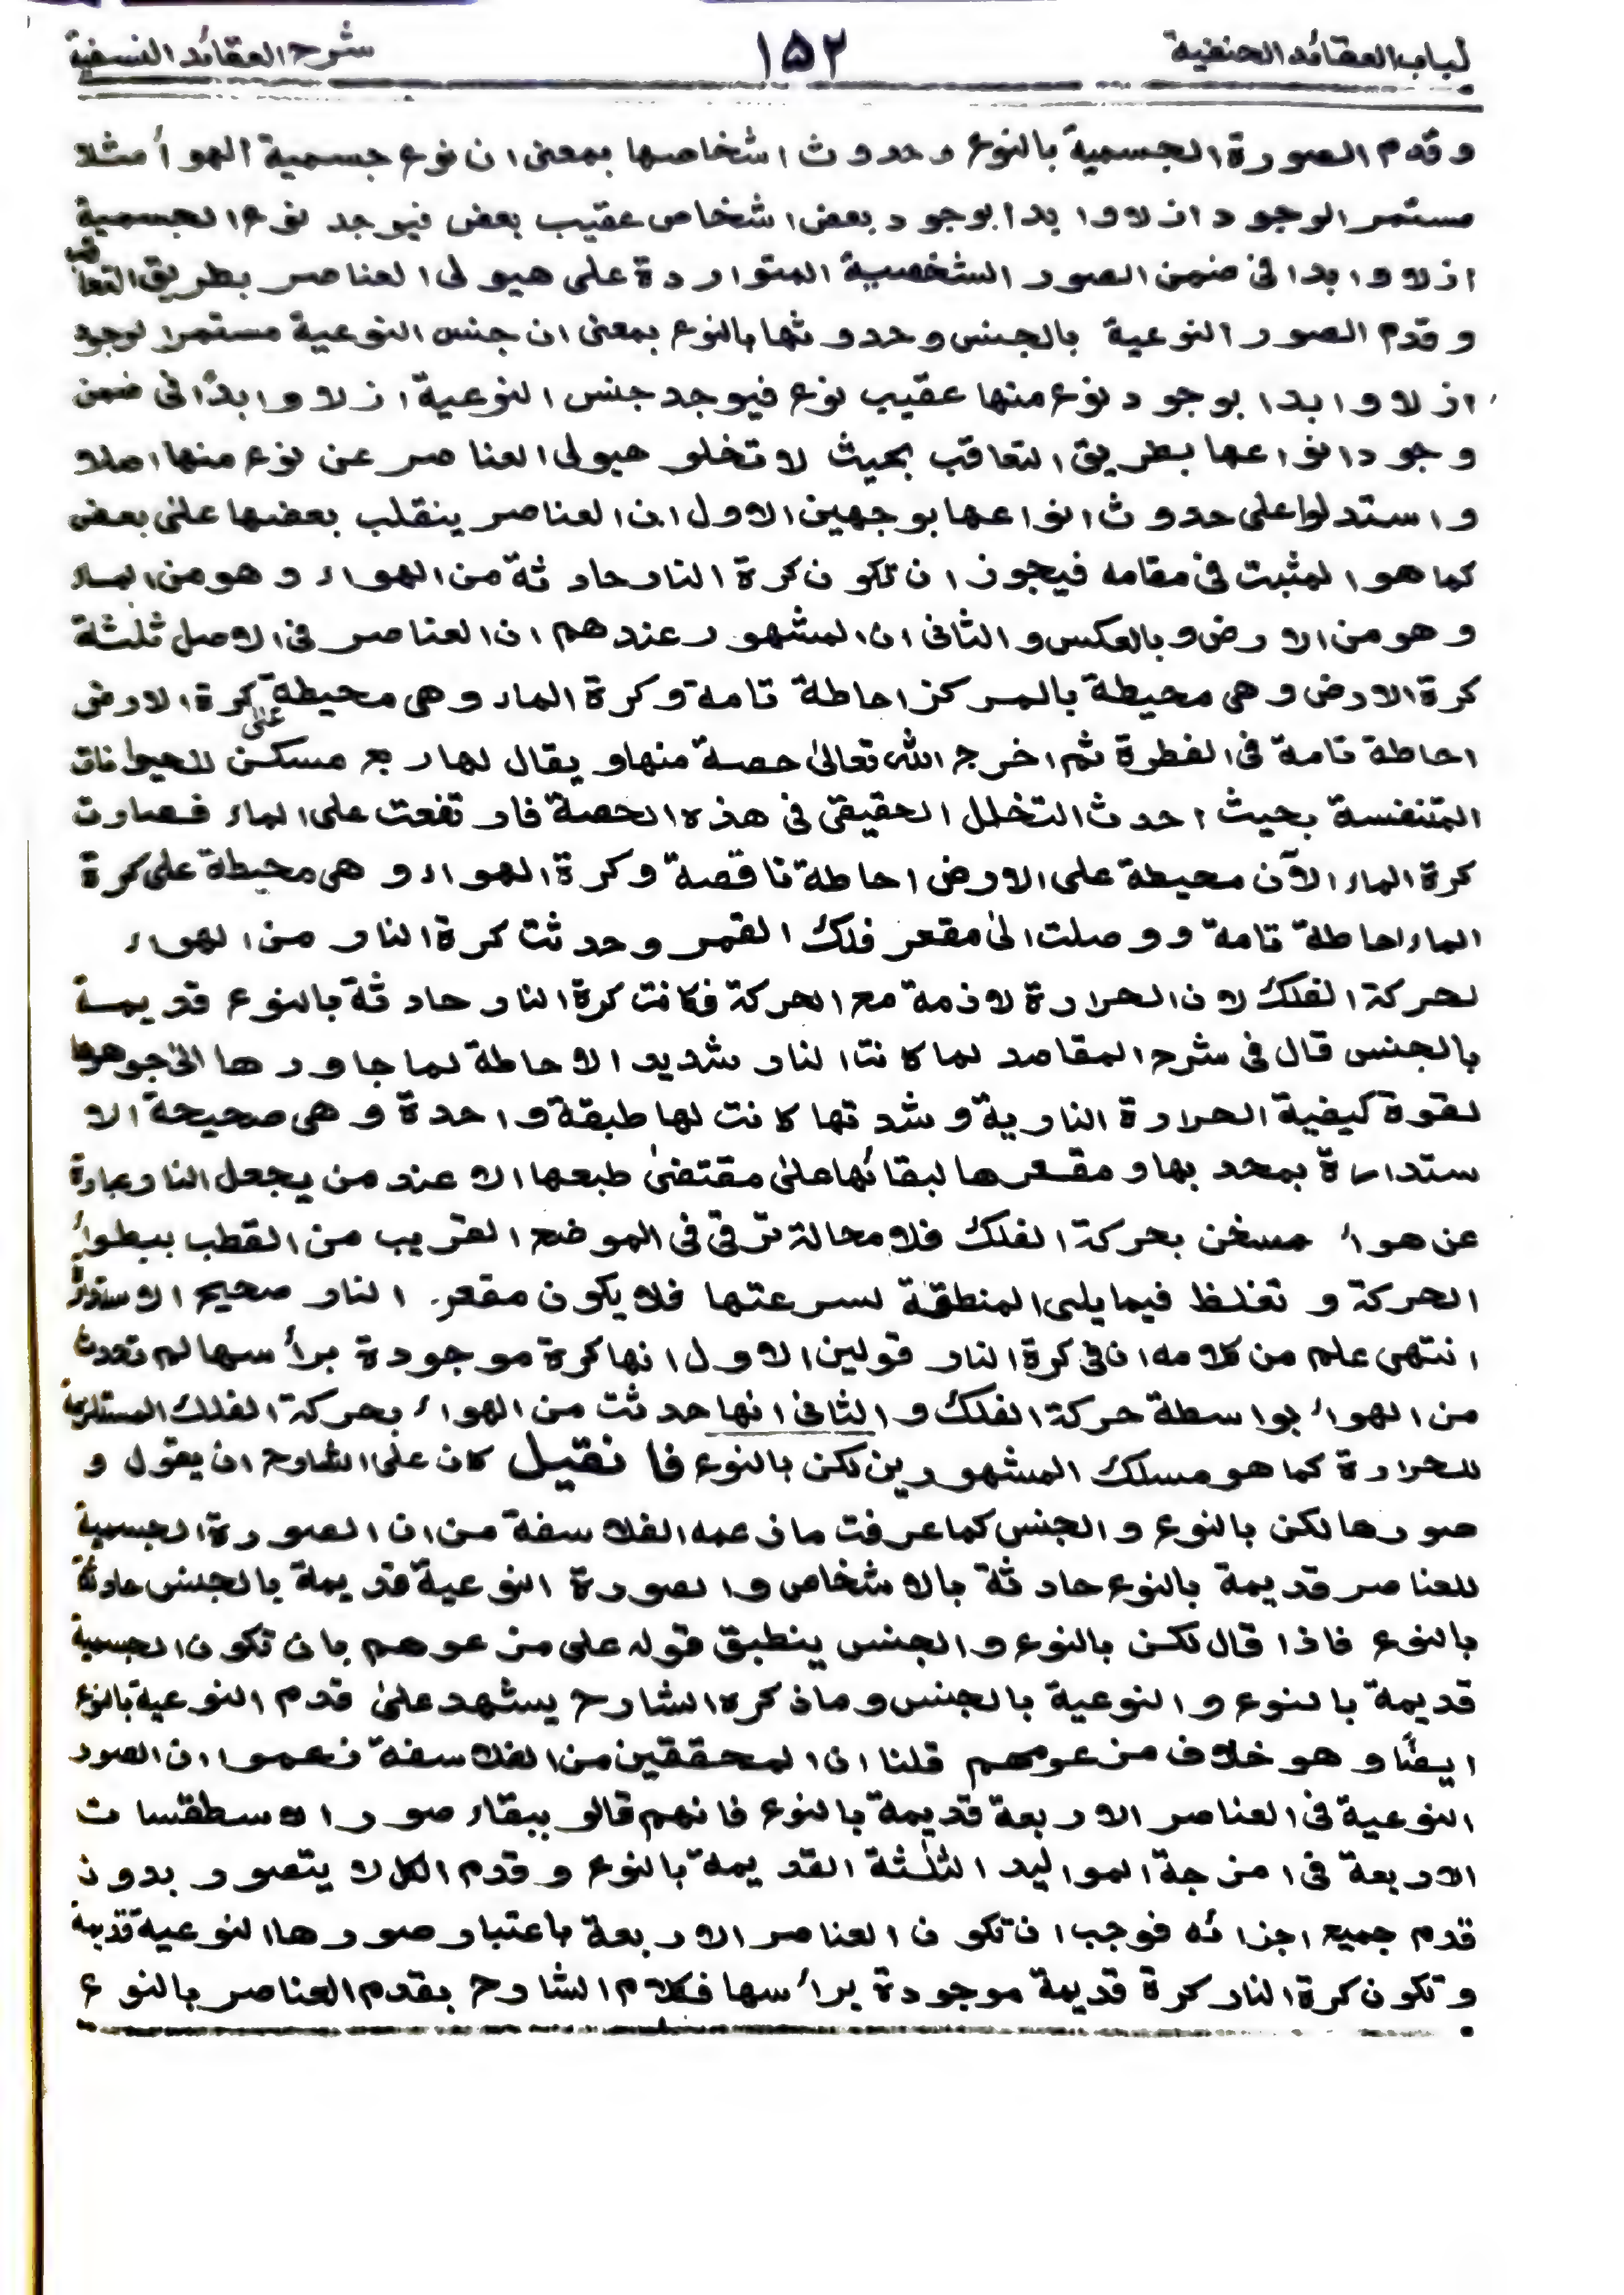 لباب العقائد الحنفية ۱۵۲ شرح العقائد النسفية
وقدم الصورة الجسمية بالنوع وحدوث اشخاصها بمعنى ان نوع جسمية الهوأ مثلا
مستمر الوجود ازلا وابدا بوجود بعض اشخاص عقيب بعض فيوجد نوع الجسمية
ازلا وابدا فى ضمن الصور الشخصية المتواردة على هيولى العناصر بطريق التعاقب
وقدم الصور النوعية بالجنس وحدوثها بالنوع بمعنى ان جنس النوعية مستمرا لوجود
ازلا وابدا بوجود نوع منها عقيب نوع فيوجد جنس النوعية ازلا وابدًا فى ضمن
وجود انواعها بطريق التعاقب بحيث لا تخلو هيولى العناصر عن نوع منها اصلا
واستدلوا على حدوث انواعها بوجهين الاول ان العناصر ينقلب بعضها على بعض
كما هو المثبت فى مقامه فيجوز ان تكون كرة النار حادثة من الهواء وهو من الماء
وهو من الارض وبالعكس والثانى ان المشهور عندهم ان العناصر فى الاصل ثلٰثة
كرة الارض وهى محيطة بالمركز احاطة تامة وكرة الماء وهى محيطة على كرة الارض
احاطة تامة فى الفطرة ثم اخرج الله تعالىٰ حصة منها ويقال لها ربع مسكن للحيوانات
المتنفسة بحيث احدث التخلل الحقيقى فى هذه الحصة فارتفعت على الماء فصارت
كرة الماء الآن محيطة على الارض احاطة ناقصة وكرة الهواء وهى محيطة على كرة
الماء احاطة تامة ووصلت الىٰ مقعر فلك القمر وحدثت كرة النار من الهواء
لحركة الفلك لان الحرارة لازمة مع الحركة فكانت كرة النار حادثة بالنوع قديمة
بالجنس قال فى شرح المقاصد لما كانت النار شديد الاحاطة لما جاورها الىٰ جوهرها
لقوة كيفية الحرارة النارية وشدتها كانت لها طبقة واحدة وهى صحيحة الا
ستدارة بمحدبها ومقعرها لبقائها علىٰ مقتضىٰ طبعها الا عند من يجعل النار عبارة
عن هوأ مسخن بحركة الفلك فلا محالة ترقى فى الموضع القريب من القطب ببطوأ
الحركة و تغلظ فيما يلى المنطقة لسرعتها فلا يكون مقعر النار صحيح الاستدارة
انتهى علم من كلامه ان فى كرة النار قولين الاول انها كرة موجودة برأسها لم تحدث
من الهوأ بواسطة حركة الفلك والثانى انها حدثت من الهوأ بحركة الفلك المستلزمة
للحرارة كما هو مسلك المشهورين لكن بالنوع فا نقيل كان على الشارح ان يقول و
صورها لكن بالنوع والجنس كما عرفت مازعمه الفلاسفة من ان الصورة الجسمية
للعناصر قديمة بالنوع حادثة بالاشخاص والصورة النوعية قديمة بالجنس حادثة
بالنوع فاذا قال لكن بالنوع والجنس ينطبق قوله على مزعوهم بان تكون الجسمية
قديمة بالنوع والنوعية بالجنس وما ذكره الشارح يشهد علىٰ قدم النوعية بالنوع
ايضًا وهو خلاف مزعومهم قلنا ان المحققين من الفلاسفة زعموا ان الصور
النوعية فى العناصر الاربعة قديمة بالنوع فانهم قالو ببقاء صور الاسطقسات
الاربعة فى امزجة المواليد الثلٰثة القديمة بالنوع وقدم الكل لا يتصور بدون
قدم جميع اجزائه فوجب ان تكون العناصر الاربعة باعتبار صورها النوعية قديمة
وتكون كرة النار كرة قديمة موجودة برأسها فكلام الشارح بقدم العناصر بالنوع